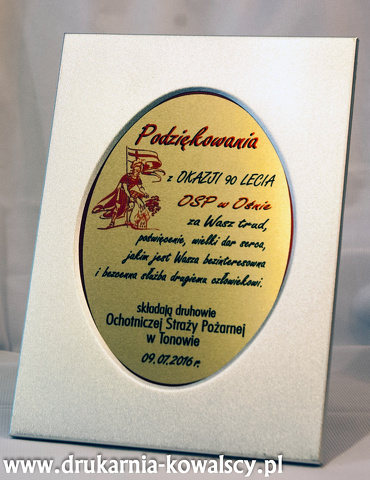 Podziękowania
z OKAZJI 90 LECIA
OSP w Ośnie
za Wasz trud,
poświęcenie, wielki dar serca,
jakim jest Wasza bezinteresowna
i bezcenna służba drugiemu człowiekowi.
składają druhowie
Ochotniczej Straży Pożarnej
w Tonowie
09.07.2016 r.
www.drukarnia-kowalscy.pl